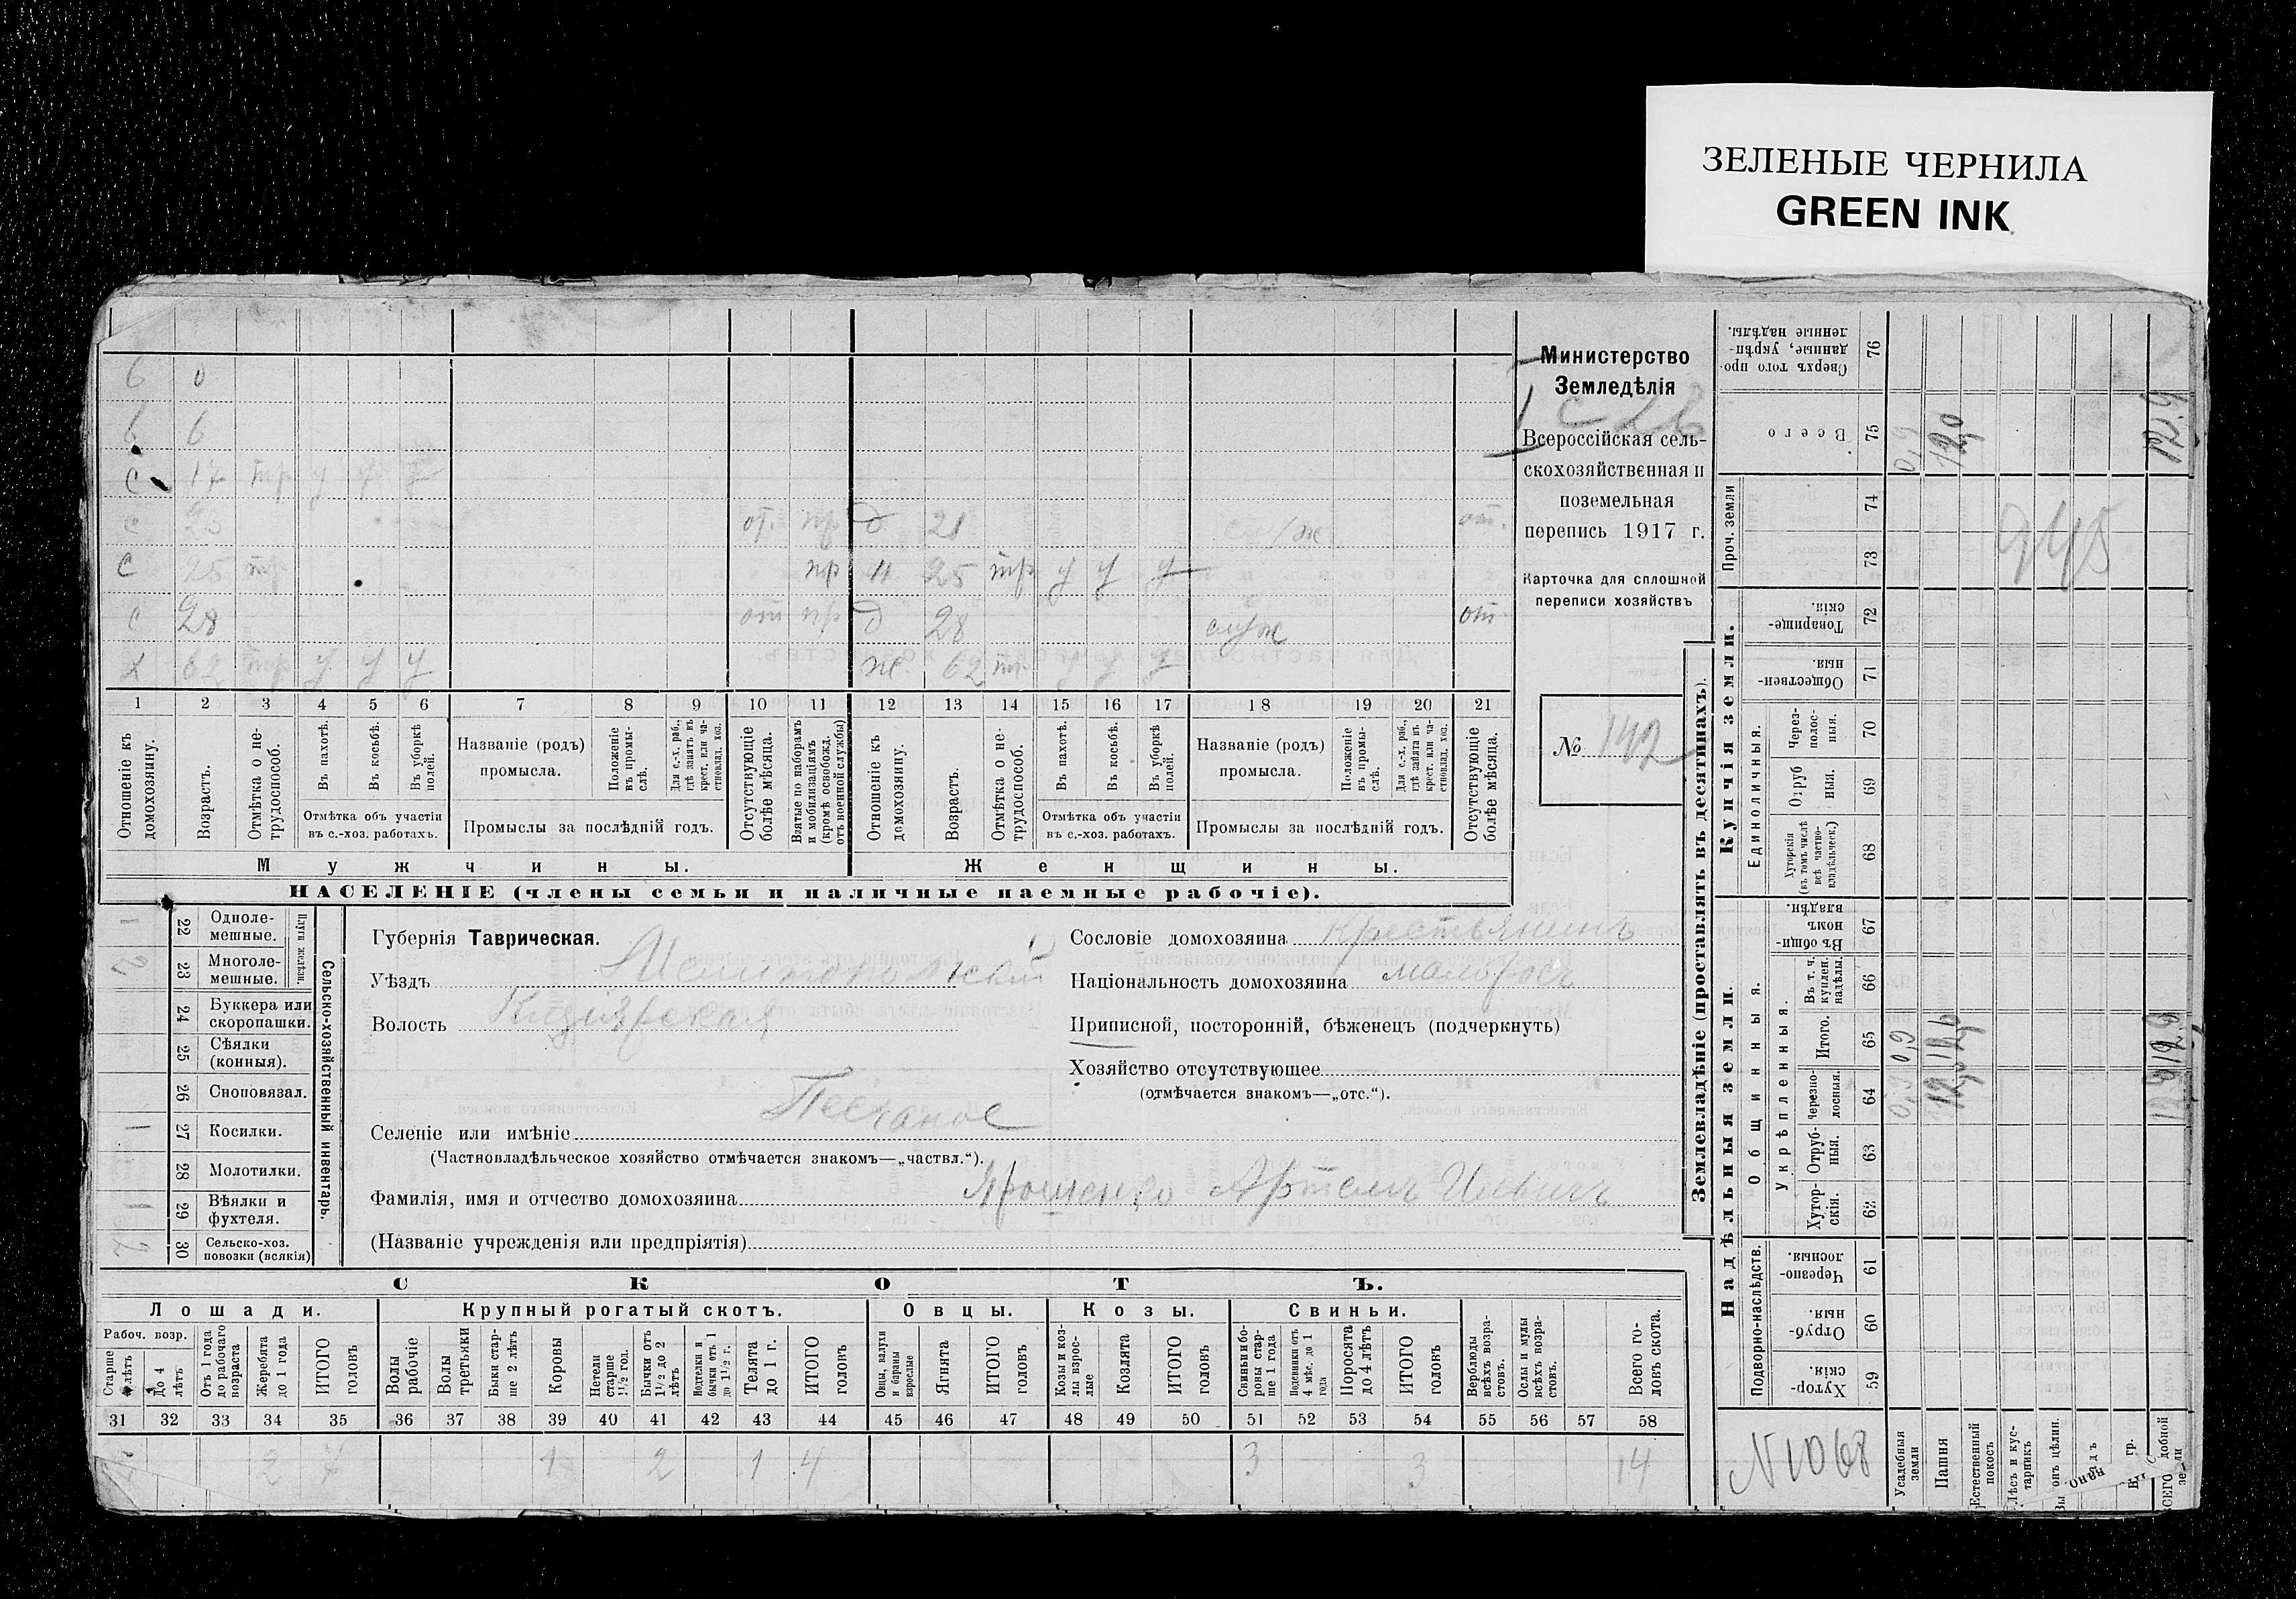 ЗЕЛЕНЫЕ ЧЕРНИЛА
GREEN INK
Министерство
Земледѣлія
Всероссійская сель-
скохозяйственная и
поземельная
перепись 1917 г.
Карточка для сплошной
переписи хозяйствъ
№ 142
б 0
б 6
с 17 тр у у у
с от. пр д 21 от.
с 25 тр пр н 25 тр у у у
с 28 от пр д 28 служ от
х 62 тр у у у ж. 62 тр у у у
1 2 3 4 5 6 7 8 9 10 11 12 13 14 15 16 17 18 19 20 21
Отношеніе къ домохозяину.
Возрастъ.
Отмѣтка о не-трудоспособ.
Въ пахотѣ.
Въ косьбѣ.
Въ уборкѣ полей.
Отмѣтка объ участіи
въ с.-хоз. работахъ.
Названіе (родъ)
промысла.
Положеніе въ промы-слѣ.
Для с.-х. раб., гдѣ занятъ въ крест. или ча-стновлад. хоз.
Промыслы за послѣдній годъ.
Отсутствующіе болѣе мѣсяца.
Взятые по наборамъ и мобилизаціямъ (кромѣ освобожд. отъ военной службы)
Отношеніе къ домохозяину.
Возрастъ.
Отмѣтка о не-трудоспособ.
Въ пахотѣ.
Въ косьбѣ.
Въ уборкѣ полей.
Отмѣтка объ участіи
въ с.-хоз. работахъ.
Названіе (родъ)
промысла.
Положеніе въ промы-слѣ.
Для с.-х. раб., гдѣ занята въ крест. или ча-стновлад. хоз.
Промыслы за послѣдній годъ.
Отсутствующіе болѣе мѣсяца.
Мужчины. Женщины.
НАСЕЛЕНІЕ (члены семьи и наличные наемные рабочіе).
Сельско-хозяйственный инвентарь.
Плуги желѣзн.
1 22 Одноле-мешные.
2 23 Многоле-мешные.
24 Буккера или скоропашки.
25 Сѣялки (конныя).
26 Сноповязал.
1 27 Косилки.
28 Молотилки.
1 29 Вѣялки и фухтеля.
2 30 Сельско-хоз. повозки (всякія)
Губернія Таврическая.
Уѣздъ Мелитопольскій
Волость Кизіярская
Селеніе или имѣніе Песчаное
(Частновладѣльческое хозяйство отмѣчается знакомъ—„частвл.“).
Фамилія, имя и отчество домохозяина Ярошенко Артемъ Ильичъ
(Названіе учрежденія или предпріятія)
Сословіе домохозяина крестьянинъ
Національность домохозяина малоросъ
Приписной, посторонній, бѣженецъ (подчеркнуть)
Хозяйство отсутствующее
(отмѣчается знакомъ—„отс.“).
СКОТЪ.
Лошади. Крупный рогатый скотъ. Овцы. Козы. Свиньи.
Рабоч. возр.
Старше 4 лѣтъ
До 4 лѣтъ
Отъ 1 года до рабочаго возраста
Жеребята до 1 года
ИТОГО головъ
Волы рабочіе
Волы третьяки
Быки стар-ше 2 лѣтъ
Коровы
Нетели старше 1½ год.
Бычки отъ 1½ до 2 лѣтъ
Подтелки и бычки отъ 1 до 1½ г.
Телята до 1 г.
ИТОГО головъ
Овцы, валухи и бараны взрослые
Ягнята
ИТОГО головъ
Козы и коз-лы взрос-лые
Козлята
ИТОГО головъ
Свиньи и бо-ровы стар-ше 1 года
Подсвинки отъ 4 мѣс. до 1 года
Поросята до 4 лѣтъ
ИТОГО головъ
Верблюды всѣхъ возра-стовъ.
Ослы и мулы всѣхъ возра-стовъ.
Всего го-ловъ скота.
31 32 33 34 35 36 37 38 39 40 41 42 43 44 45 46 47 48 49 50 51 52 53 54 55 56 57 58
2 7 1 2 1 4 3 3 14
Землевладѣніе (проставлять въ десятинахъ).
Купчія земли.
Надѣльныя земли.
Сверхъ того про-данные, укрѣп-ленные надѣлы. 76
Всего 75 0,9 12,0 12,9
Проч. земли 74 73
945
Товарище-скія. 72
Обществен-ныя. 71
Единоличныя.
Через-полос-ныя. 70
Отруб-ныя. 69
Хуторскія (въ томъ числѣ всѣ частно-владѣльческ.) 68
Общинныя.
Въ общи-номъ владѣн. 67
Укрѣпленныя.
Въ т. ч. куплен. надѣлы. 66
Итого. 65 0,9 12,0 12,9
Черезпо-лосныя. 64 0,9 12,0 12,9
Отруб-ныя. 63
Хутор-скія. 62
Подворно-наслѣдств.
Черезпо-лосныя 61
Отруб-ныя. 60
Хутор-скія 59
N 1068
Усадебныя земли
Пашня
Естественный покосъ
Лѣсъ и кус-тарникъ